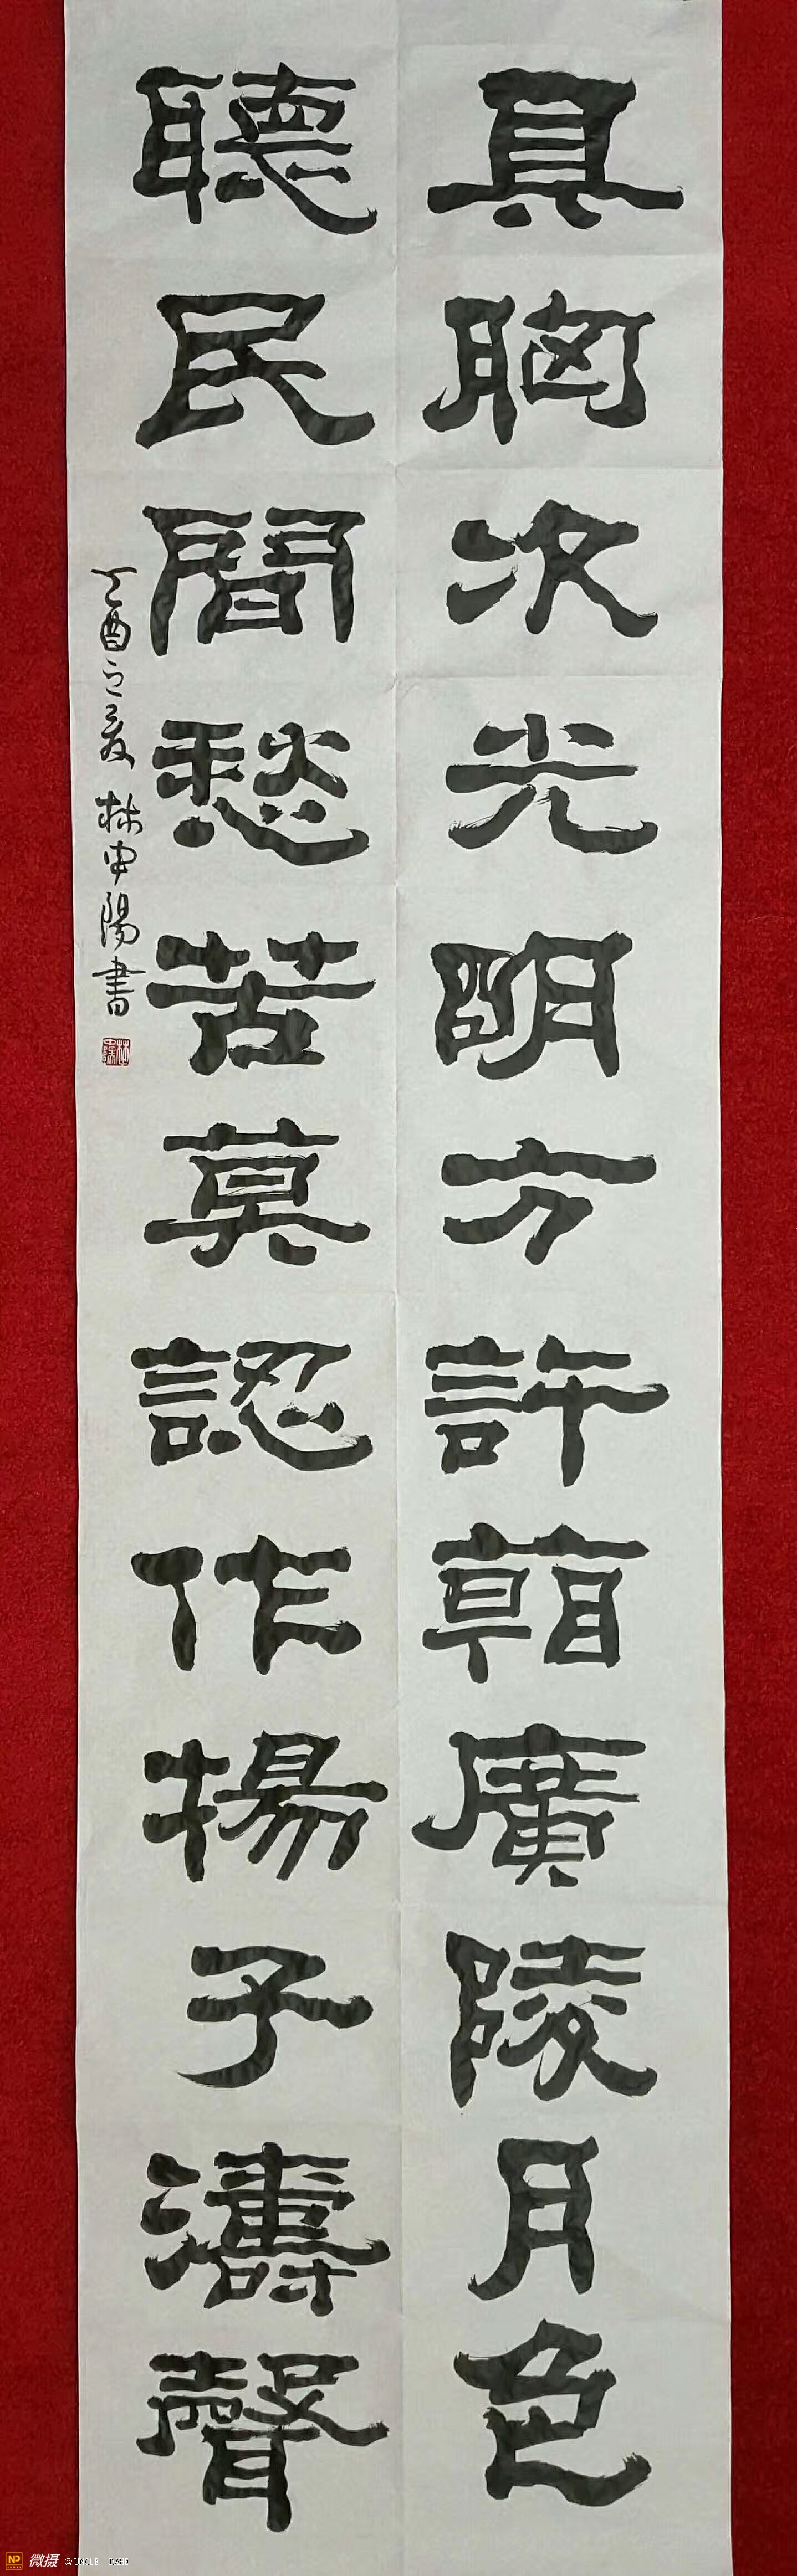 具胸次光明方許廣陵月色
聽民間愁苦莫認作揚子濤聲
丁酉之夏 林申陽書
NP 微摄 @UNCLE DAHE